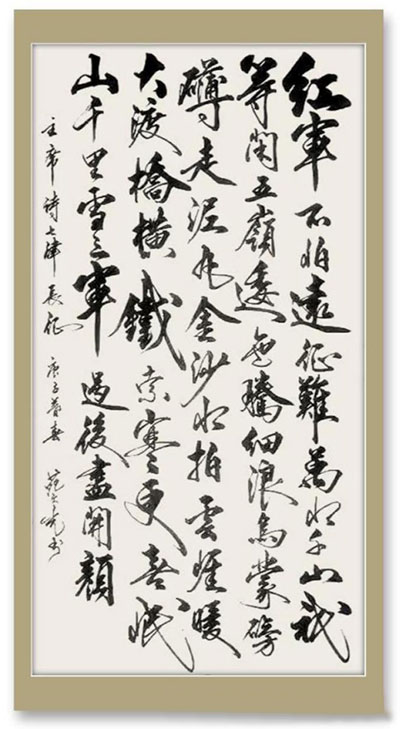 紅軍不怕遠征難萬水千山祇
等閑五嶺逶迤騰細浪烏蒙磅
礴走泥丸金沙水拍雲崖暖
大渡橋橫鐵索寒更喜岷
山千里雪三軍過後盡開顏
主席詩七律長征 庚子暮春